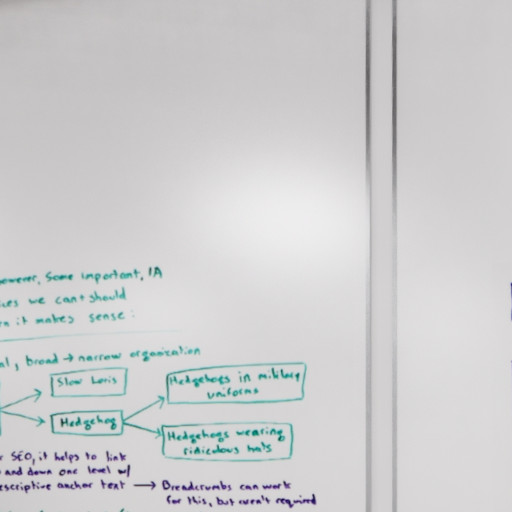 however, Some important, IA
we can + should
it makes sense:
, broad → narrow organization
Slow Loris
Hedgehogs in military
uniforms
Hedgehog
Hedgehogs wearing
ridiculous hats
SEO, it helps to link
and down one level w/
descriptive anchor text → Breadcrumbs can work
for this, but aren't required